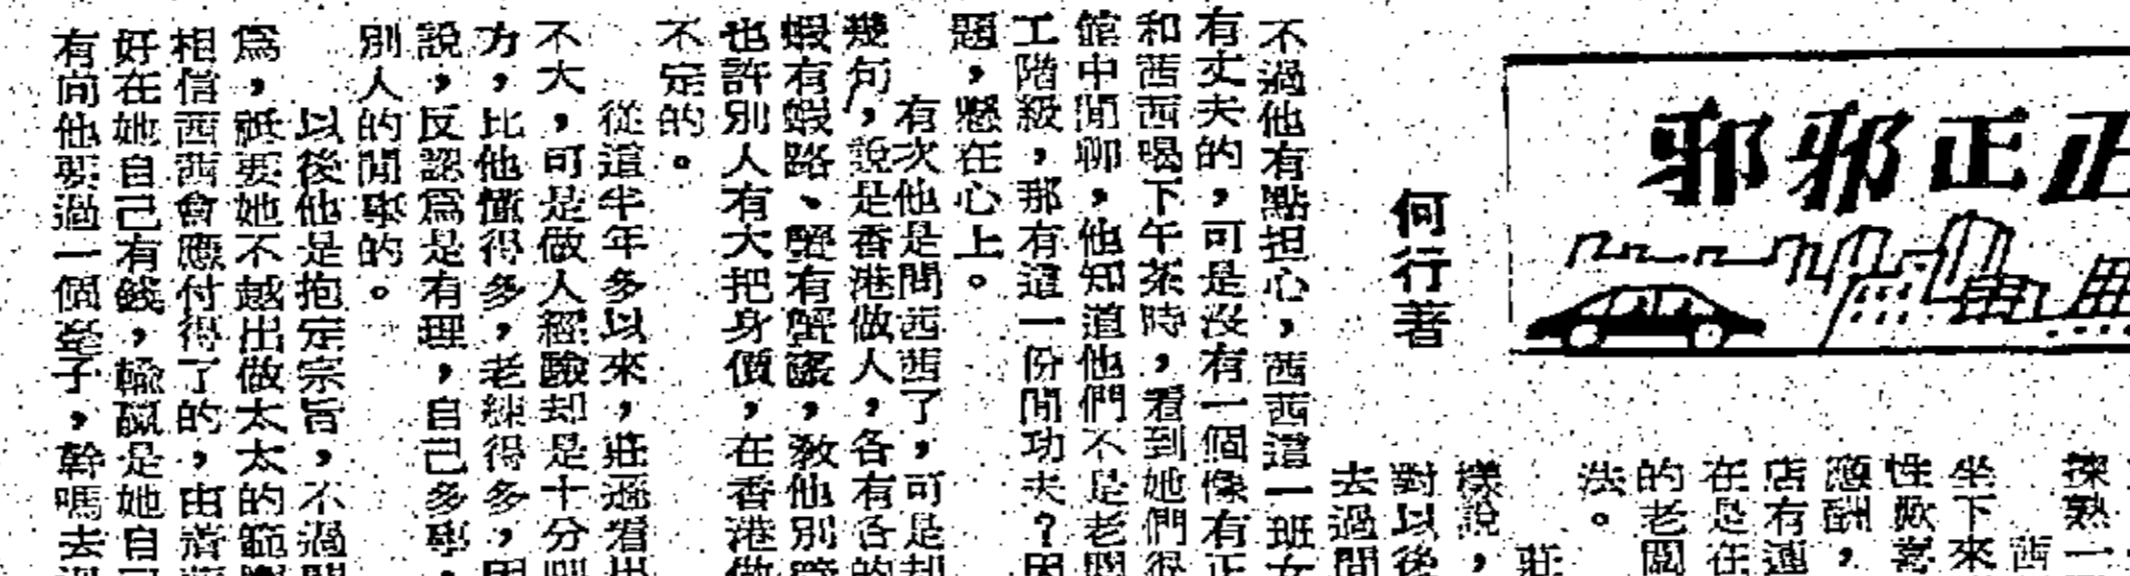 正正邪邪
何行著
揀熟一
茜
坐下來
性歡喜
應酬，
店有連
在是在
的老闆
法。
莊
樣說，
對以後
去過問
不過他有點担心，茜西這一班女
有丈夫的，可是没有一個像有正
和茜西喝下午茶時，看到她們很
館中閒聊，他知道他們不是老闆
工階級，那有這一份閒功夫？因
題，懸在心上。
有次他是問西茜了，可是却
幾句，說是香港做人，各有各的
蝦有蝦路、蟹有蟹，教他別
也許別人有大把身價，在香港做
不定的。
從這半年多以來，莊遜看出
不大，可是做人經驗却是十分
力，比他懂得多，老練得多，因
說，反認爲是有理，自己多事，
別人的閒事的。
以後他是抱定宗旨，不過問
爲，祇要她不越出做太太的範圍
相信西茜會應付得了的，由
好在她自己有錢，輸贏是她自己
有向他要過一個毫子，幹嗎去過